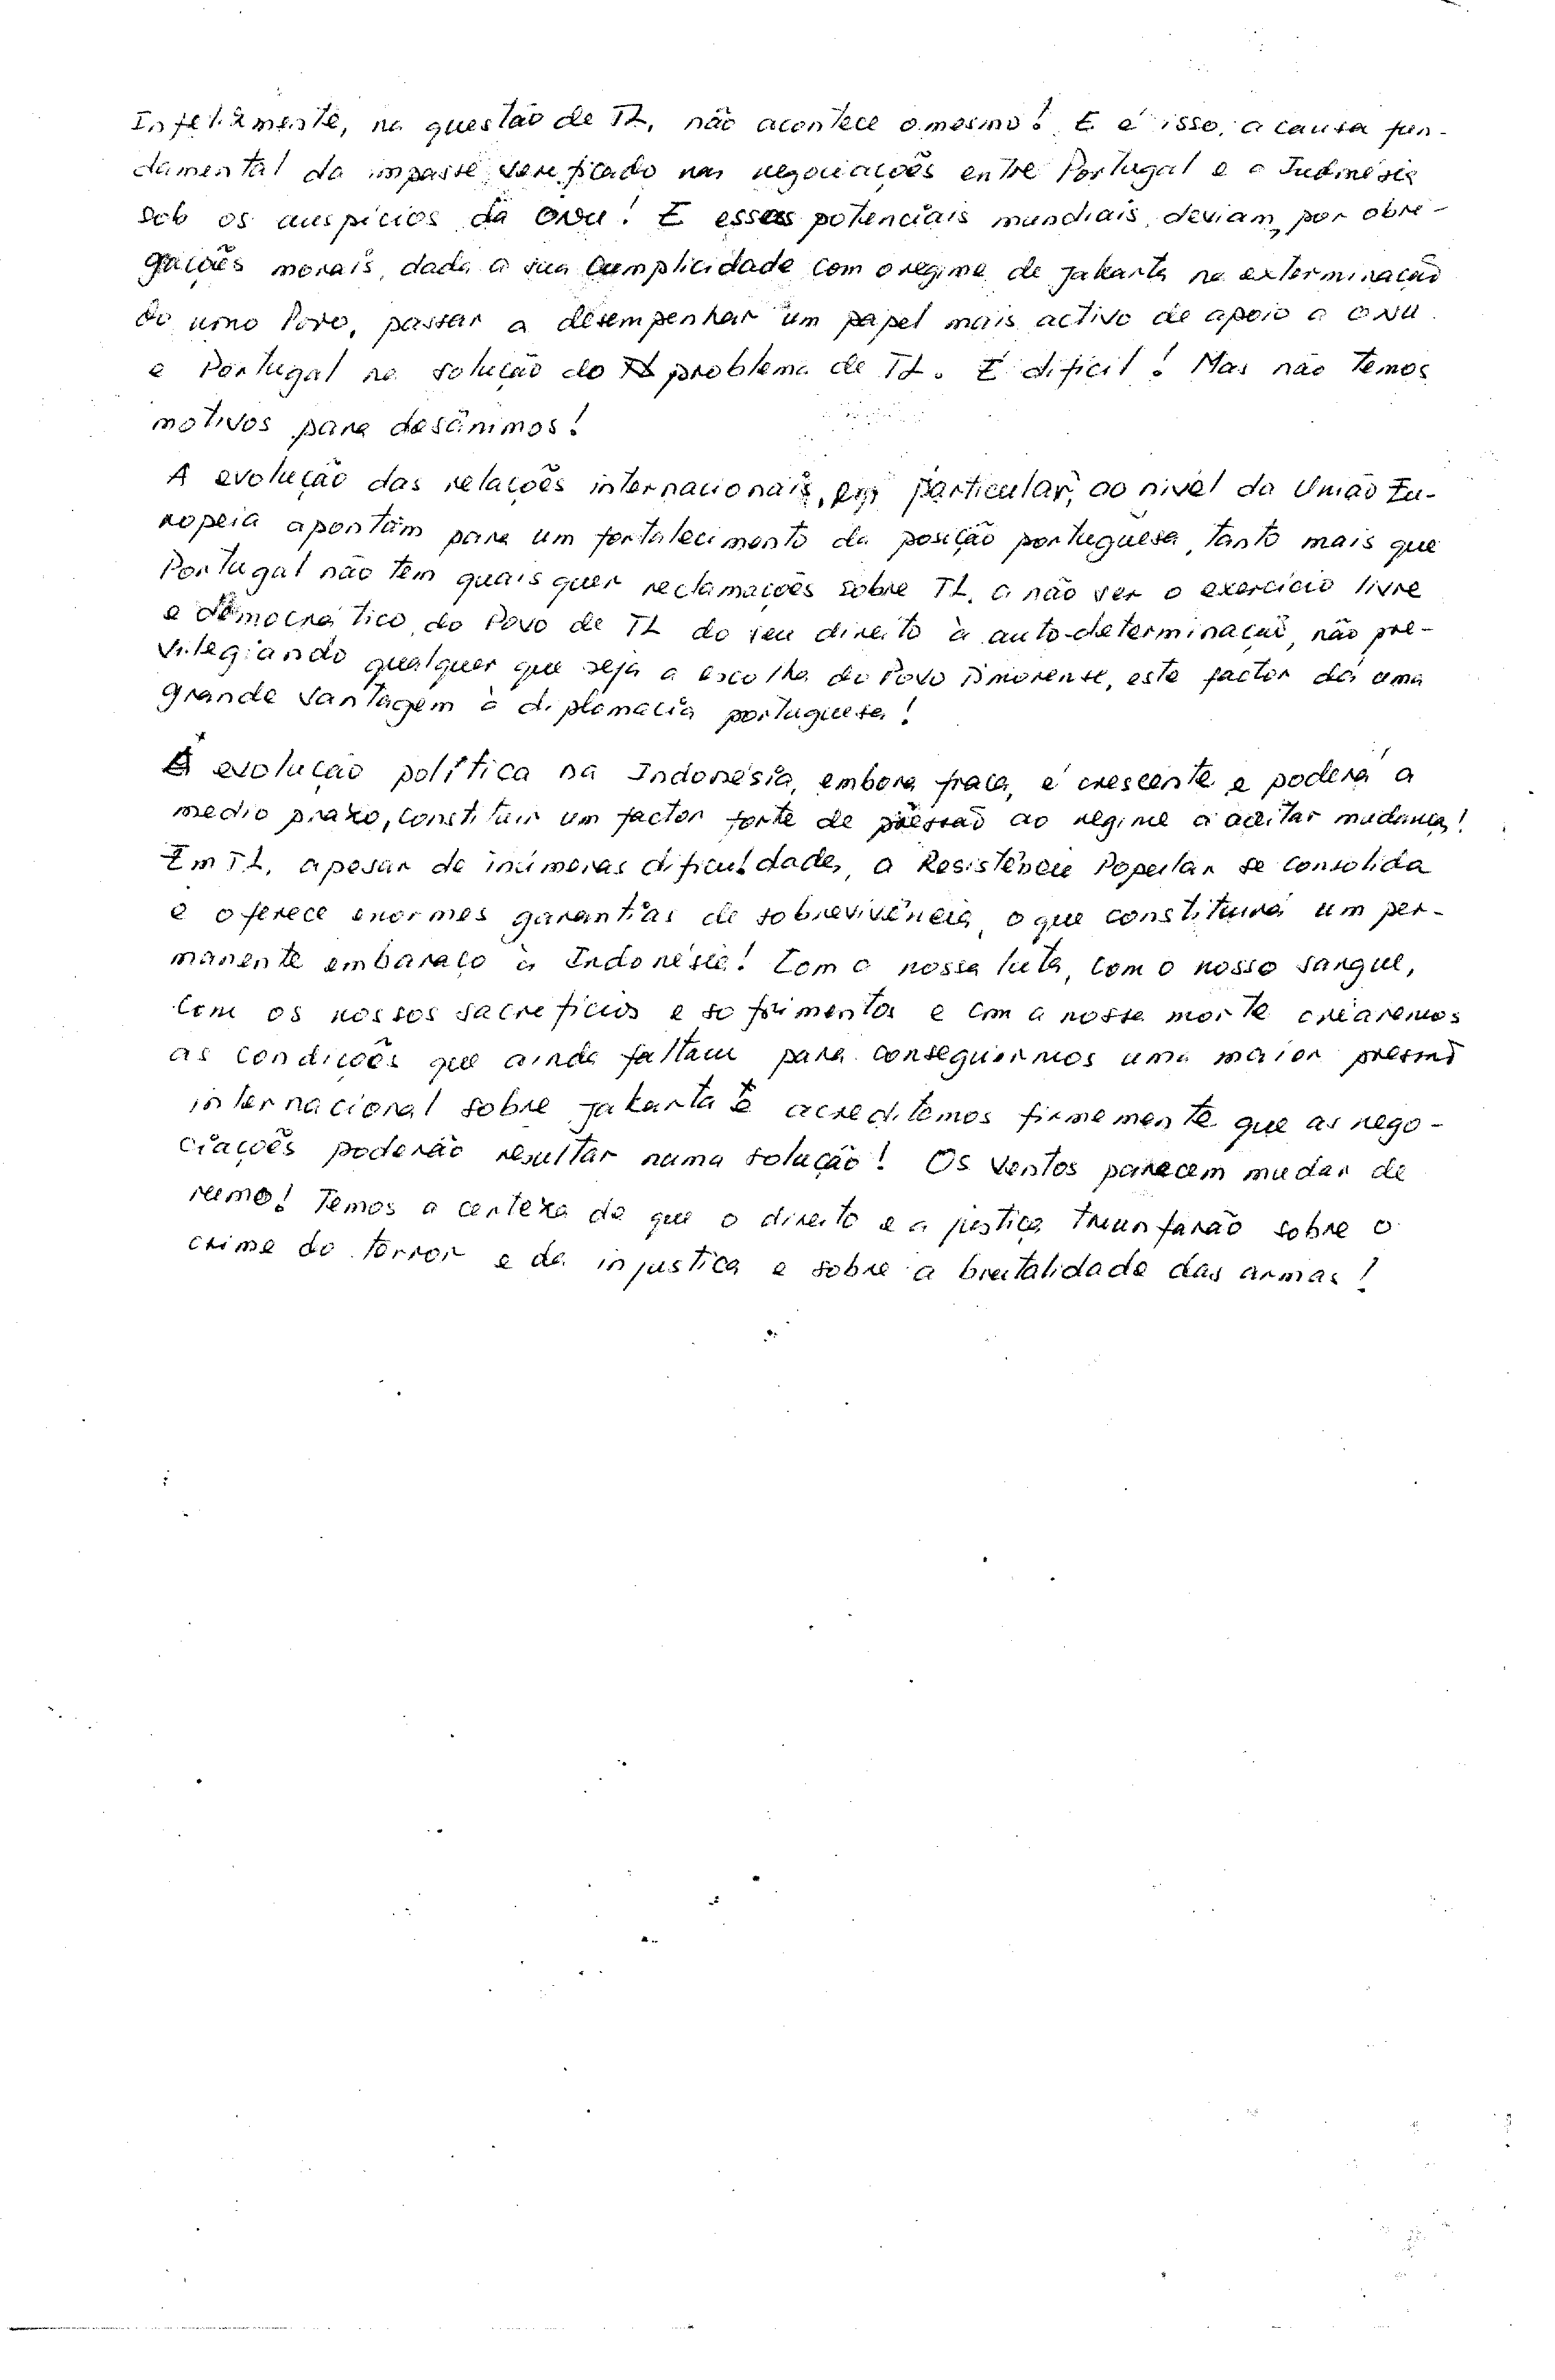 Infelizmente, na questão de TL, não acontece o mesmo! E é isso, a causa fun-
damental do impasse verificado nas negociações entre Portugal e a Indonésia
sob os auspícios da ONU! E essas potenciais mundiais, deviam, por obri-
gações morais, dada a sua cumplicidade com o regime de Jakarta na exterminação
do Povo, passar a desempenhar um papel mais activo de apoio a ONU
e Portugal na solução do problema de TL. É difícil! Mas não temos
motivos para desânimos!
A evolução das relações internacionais, em particular, ao nível da União Eu-
ropeia apontam para um fortalecimento da posição portuguesa, tanto mais que
Portugal não tem quaisquer reclamações sobre TL, a não ser o exercício livre
e democrático do Povo de TL do seu direito à auto-determinação, não pre-
vilegiando qualquer que seja a escolha do Povo Timorense, este factor dá uma
grande vantagem à diplomacia portuguesa!
A evolução política na Indonésia, embora fraca, é crescente e poderá a
medio prazo, constituir um factor forte de pressão ao regime a aceitar mudanças!
Em TL, apesar de inúmeras dificuldades, a Resistência Popular se consolida
e oferece enormes garantias de sobrevivência, o que constituirá um per-
manente embaraço à Indonésia! Com a nossa luta, com o nosso sangue,
com os nossos sacrefícios e sofrimentos e com a nossa morte criaremos
as condições que ainda faltam para conseguirmos uma maior pressão
internacional sobre Jakarta e acreditemos firmemente que as nego-
ciações poderão resultar numa solução! Os ventos parecem mudar de
rumo! Temos a certeza de que o direito e a justiça triunfarão sobre o
crime do terror e da injustiça e sobre a brutalidade das armas!